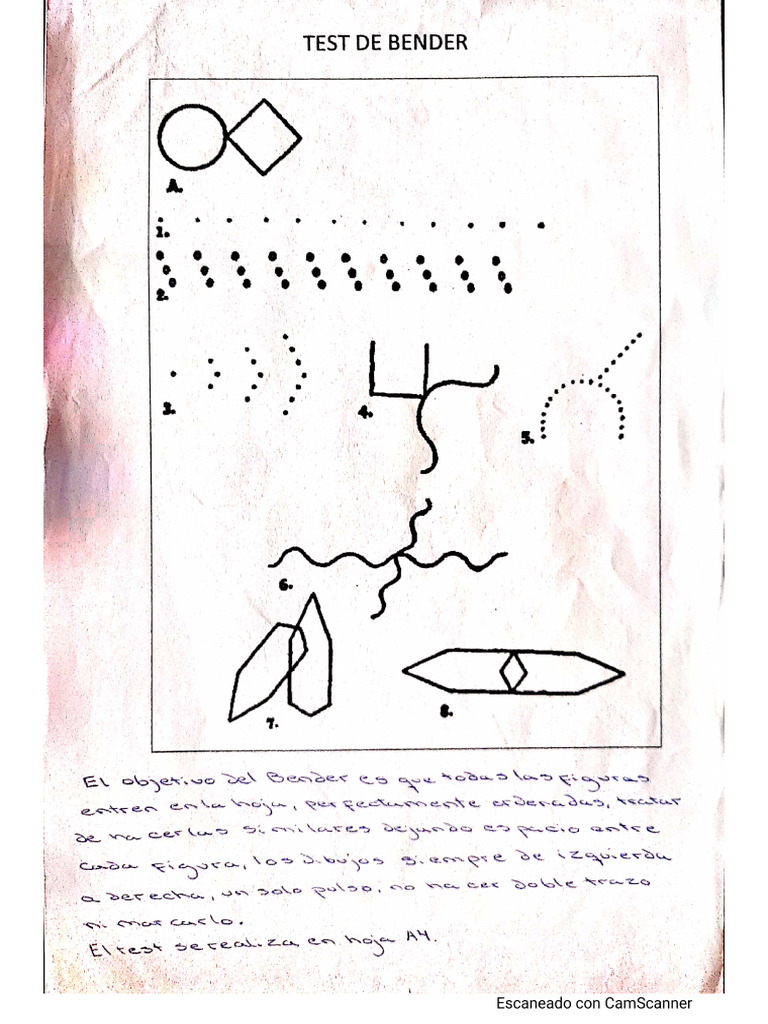 TEST DE BENDER
A.
1.
2.
3.
4.
5.
6.
7.
8.
El objetivo del Bender es que todas las figuras
entren en la hoja, perfectamente ordenadas, tratar
de hacerlas similares dejando espacio entre
cada figura, los dibujos siempre de izquierda
a derecha, un solo pulso, no hacer doble trazo
ni marcarlo.
El test se realiza en hoja A4.
Escaneado con CamScanner